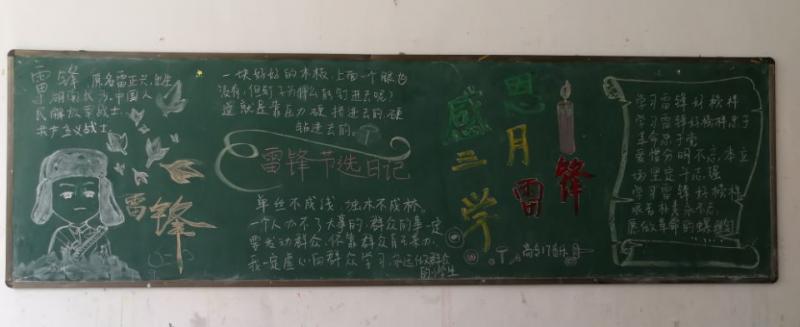 雷锋 原名雷正兴,出生
于湖南长沙,中国人
民解放军战士
共产主义战士
雷锋
一块好好的木板,上面一个眼也
没有,但钉子为什么能钉进去呢?
这就是靠压力硬挤进去的,硬
钻进去的。
雷锋节选日记
单丝不成线,独木不成林。
一个人办不了大事的,群众的事一定
要发动群众,依靠群众自己来办,
我一定虚心向群众学习,永远做群众
的小学生
感恩
三月
学雷锋
学习雷锋好榜样
学习雷锋好榜样忠于
革命忠于党
爱憎分明不忘本立
场坚定斗志强
学习雷锋好榜样